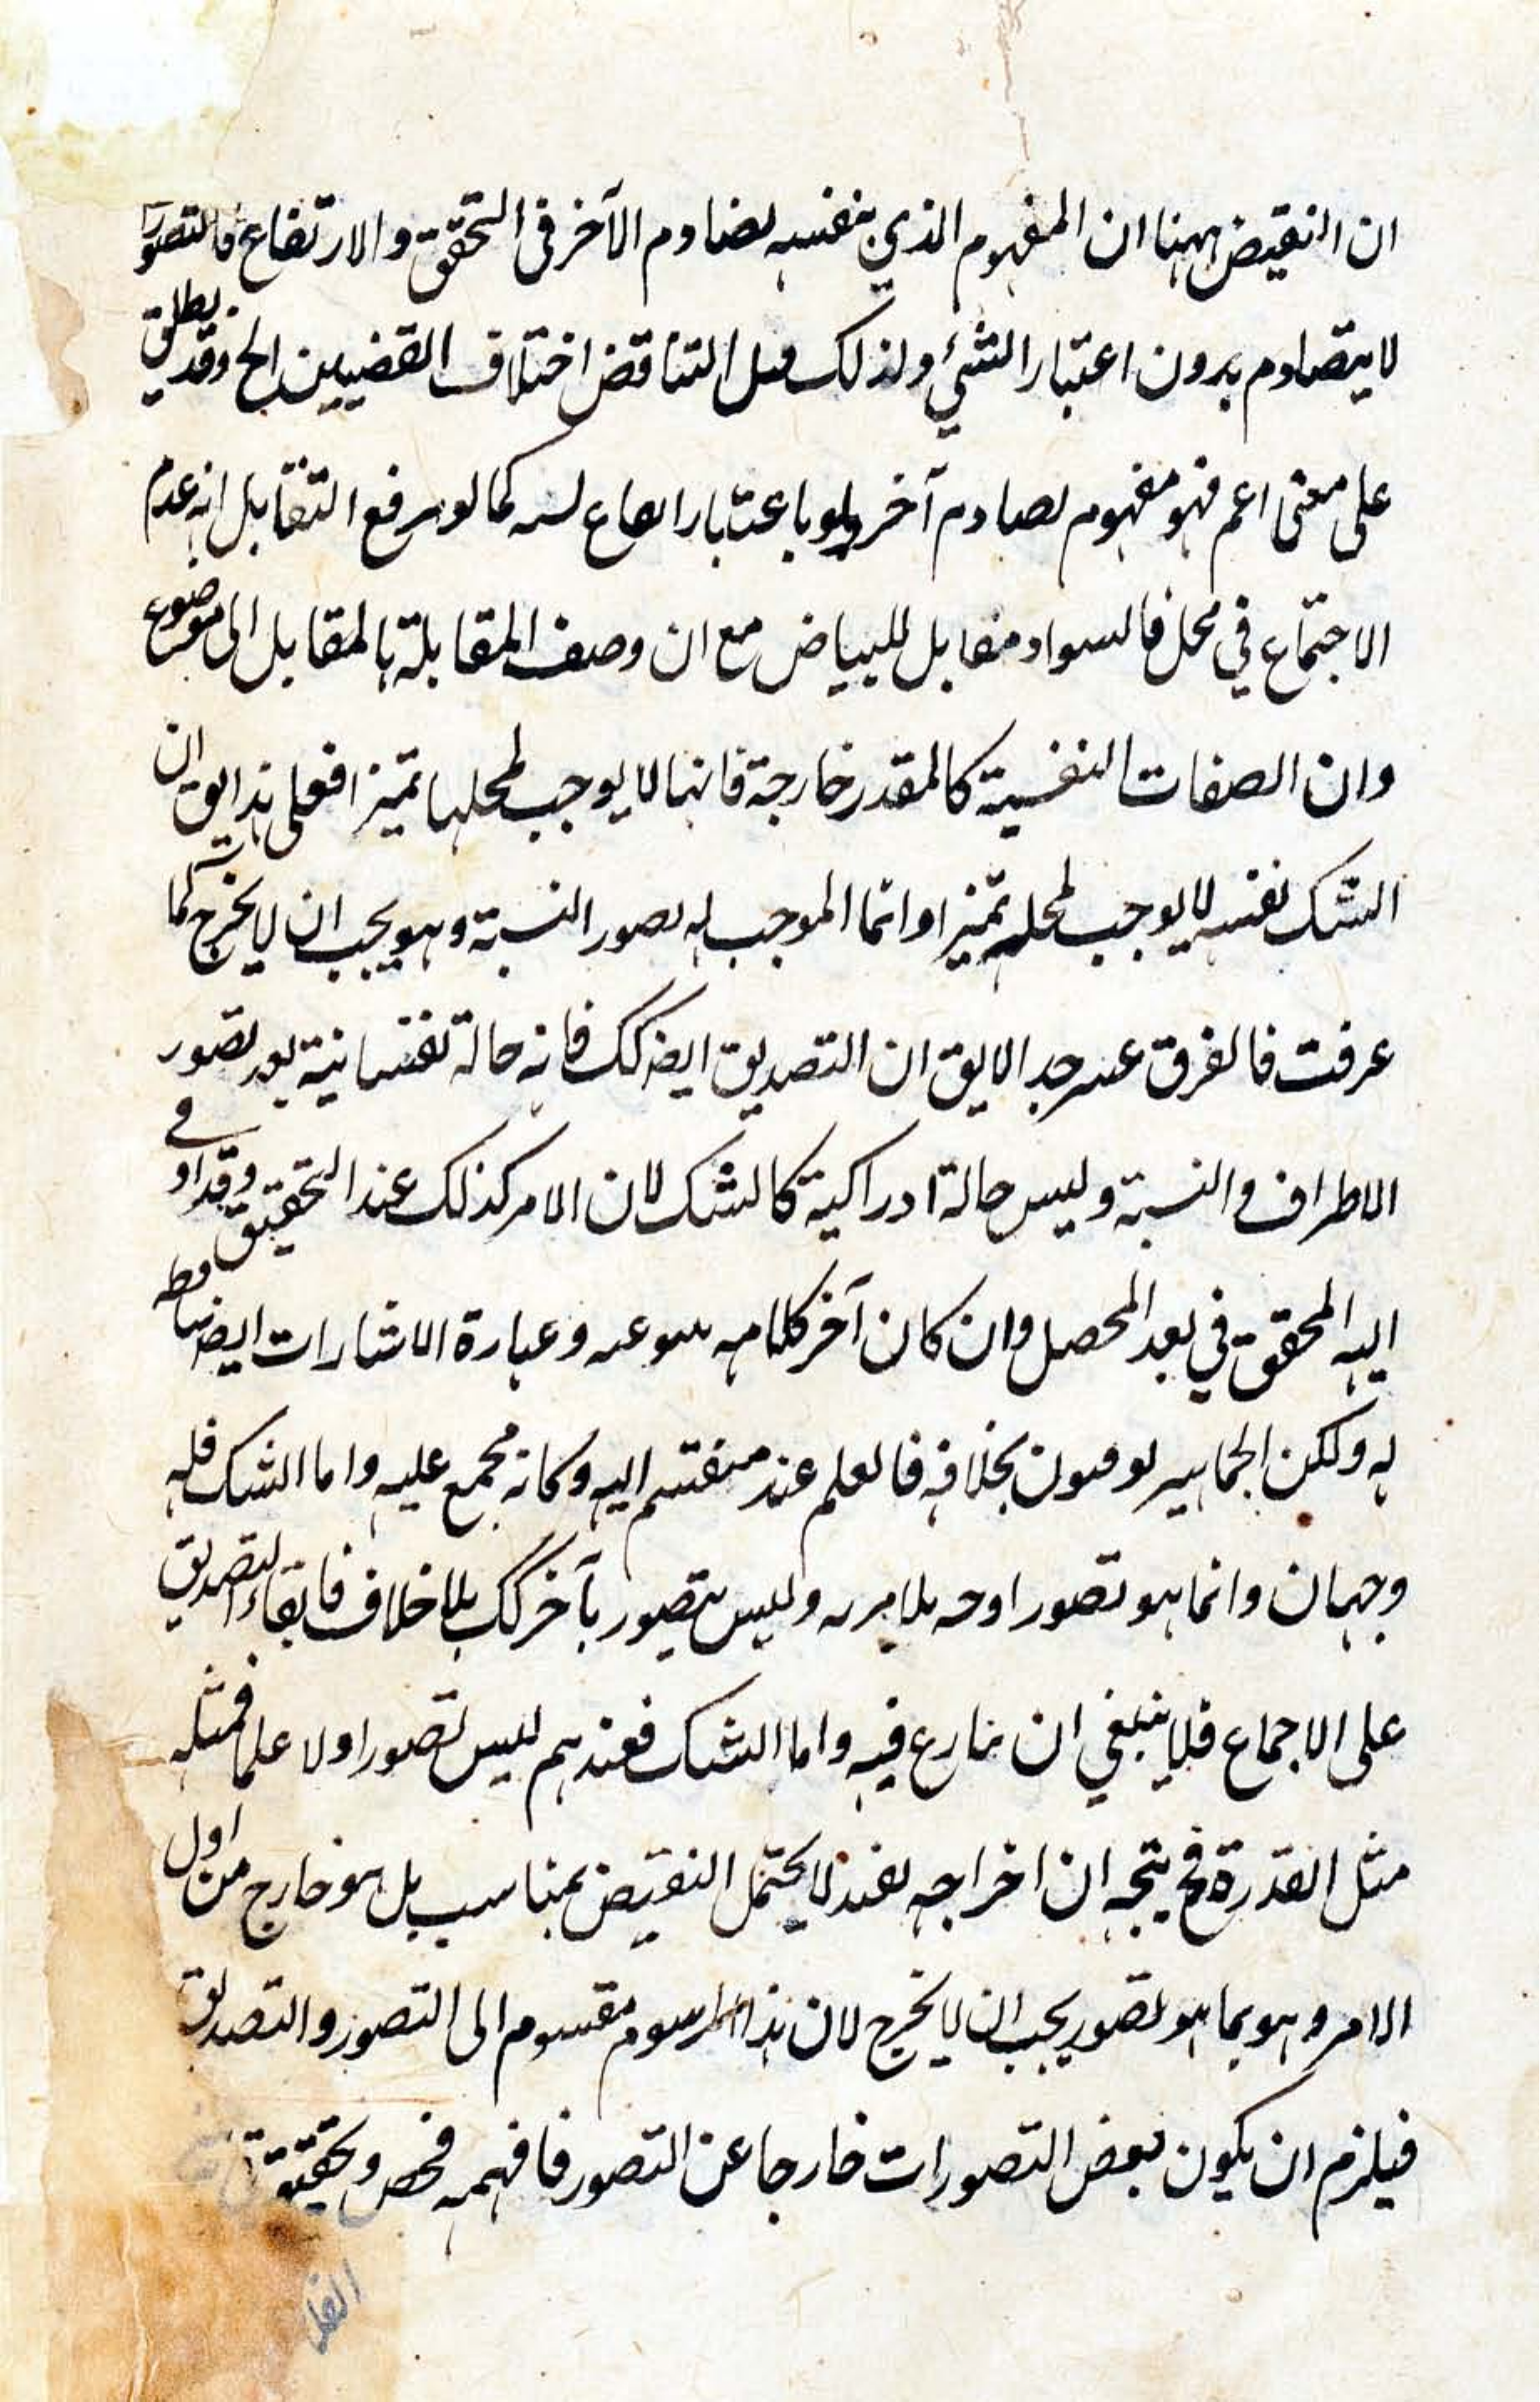 ان النقيض ههنا ان المفهوم الذي بنفسه يصادم الآخر فى التحقق والارتفاع فالتصورات
لا يتصادم بدون اعتبار الشئ ولذلك قيل التناقض اختلاف القضيتين الخ وقد يطلق
على معنى اعم فهو مفهوم يصادم آخر ولو باعتبار كما لو التقابل انه عدم
الاجتماع في محل فالسواد مقابل للبياض مع ان وصف المقابلة بالمقابل الى موضوع
وان الصفات النفسية كالمقدر خارجة فانها لا يوجب لمحلها تميزا فعلى هذا يق ان
الشك نفسه لا يوجب لمحله تميزا وانما الموجب له تصور النسبة وهو يجب ان لا يخرج كما
عرفت فالفرق جدا لا يق ان التصديق ايضا كك فانه حالة نفسانية بعد تصور
الاطراف والنسبة وليس حالة ادراكية كالشك لان الامر كذلك عند التحقيق وقد او في
اليه المحقق في بعد المحصل وان كان آخر كلامه وعبارة الاشارات ايضا
له ولكن الجماهير بخلافه فالعلم عند منقسم اليه وكانه مجمع عليه واما الشك فله
وجهان وانما هو تصور وليس بتصور بآخر كك بلا خلاف فابقاء التصديق
على الاجماع فلا ينبغي ان ينازع فيه واما الشك فعندهم ليس تصورا ولا علما فمثله
مثل القدرة فح يتجه ان اخراجه بقيد لا يحتمل النقيض بمناسب بل هو خارج من اول
الامر وهو بما هو تصور يجب ان لا يخرج لان هذا المرسوم مقسوم الى التصور والتصديق
فيلزم ان يكون بعض التصورات خارجا عن التصور فافهمه فحص وتحقيق